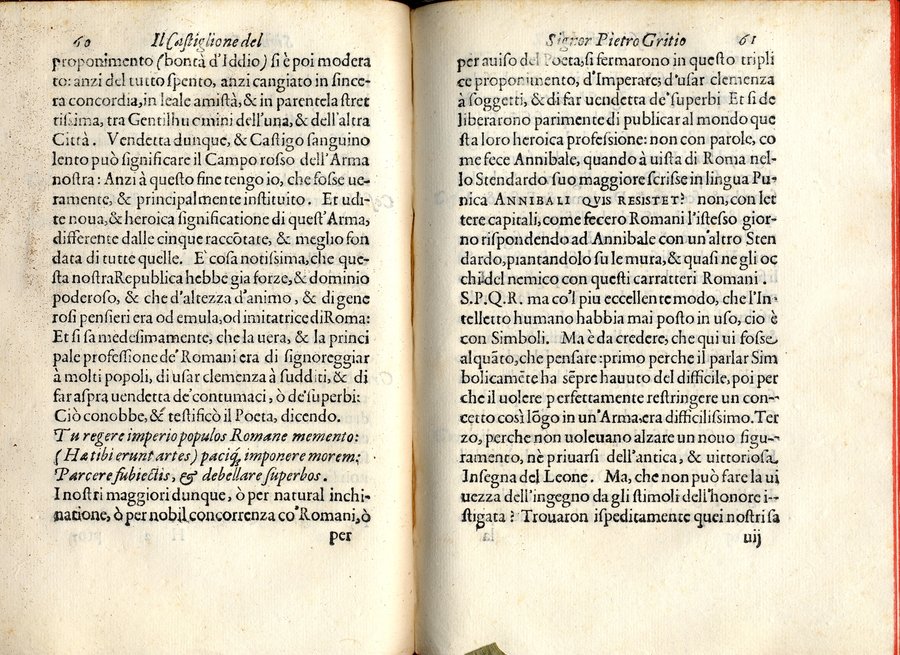 60 Il Castiglione del
proponimento (bontà d'Iddio) si è poi modera
to: anzi del tutto spento, anzi cangiato in since-
ra concordia, in leale amistà, & in parentela stret
tissima, tra Gentilhuomini dell'una, & dell'altra
Città. Vendetta dunque, & Castigo sanguino
lento può significare il Campo rosso dell'Arma
nostra: Anzi à questo fine tengo io, che fosse ue-
ramente, & principalmente instituito. Et udi-
te noua, & heroica significatione di quest'Arma,
differente dalle cinque raccōtate, & meglio fon
data di tutte quelle. E cosa notissima, che que-
sta nostra Republica hebbe gia forze, & dominio
poderoso, & che d'altezza d'animo, & di gene
rosi pensieri era od emula, od imitatrice di Roma:
Et si sa medesimamente, che la uera, & la princi
pale professione de' Romani era di signoreggiar
à molti popoli, di usar clemenza à sudditi, & di
far aspra uendetta de' contumaci, ò de' superbi:
Ciò conobbe, & testificò il Poeta, dicendo.
Tu regere imperio populos Romane memento:
(Hæ tibi erunt artes) paciq́, imponere morem;
Parcere subiectis, & debellare superbos.
I nostri maggiori dunque, ò per natural inchi-
natione, ò per nobil concorrenza co' Romani, ò
per
Signor Pietro Gritio 61
per auiso del Poeta, si fermarono in questo tripli
ce proponimento, d'Imperare; d'usar clemenza
à soggetti, & di far uendetta de' superbi Et si de
liberarono parimente di publicar al mondo que
sta loro heroica professione: non con parole, co
me fece Annibale, quando à uista di Roma nel-
lo Stendardo suo maggiore scrisse in lingua Pu-
nica ANNIBALI QVIS RESISTET? non, con let
tere capitali, come fecero Romani l'istesso gior-
no rispondendo ad Annibale con un'altro Sten
dardo, piantandolo su le mura, & quasi ne gli oc
chi del nemico con questi carratteri Romani.
S.P.Q.R. ma co'l piu eccellente modo, che l'In-
telletto humano habbia mai posto in uso, cio è
con Simboli. Ma è da credere, che qui ui fosse
alquāto, che pensare: primo perche il parlar Sim
bolicamēte ha sēpre hauuto del difficile, poi per
che il uolere perfettamente restringere un con-
cetto così lōgo in un'Arma, era difficilissimo. Ter
zo, perche non uoleuano alzare un nouo figu-
ramento, nè priuarsi dell'antica, & uittoriosa
Insegna del Leone. Ma, che non può fare la ui
uezza dell'ingegno da gli stimoli dell'honore i-
stigata? Trouaron ispeditamente quei nostri sa
uij